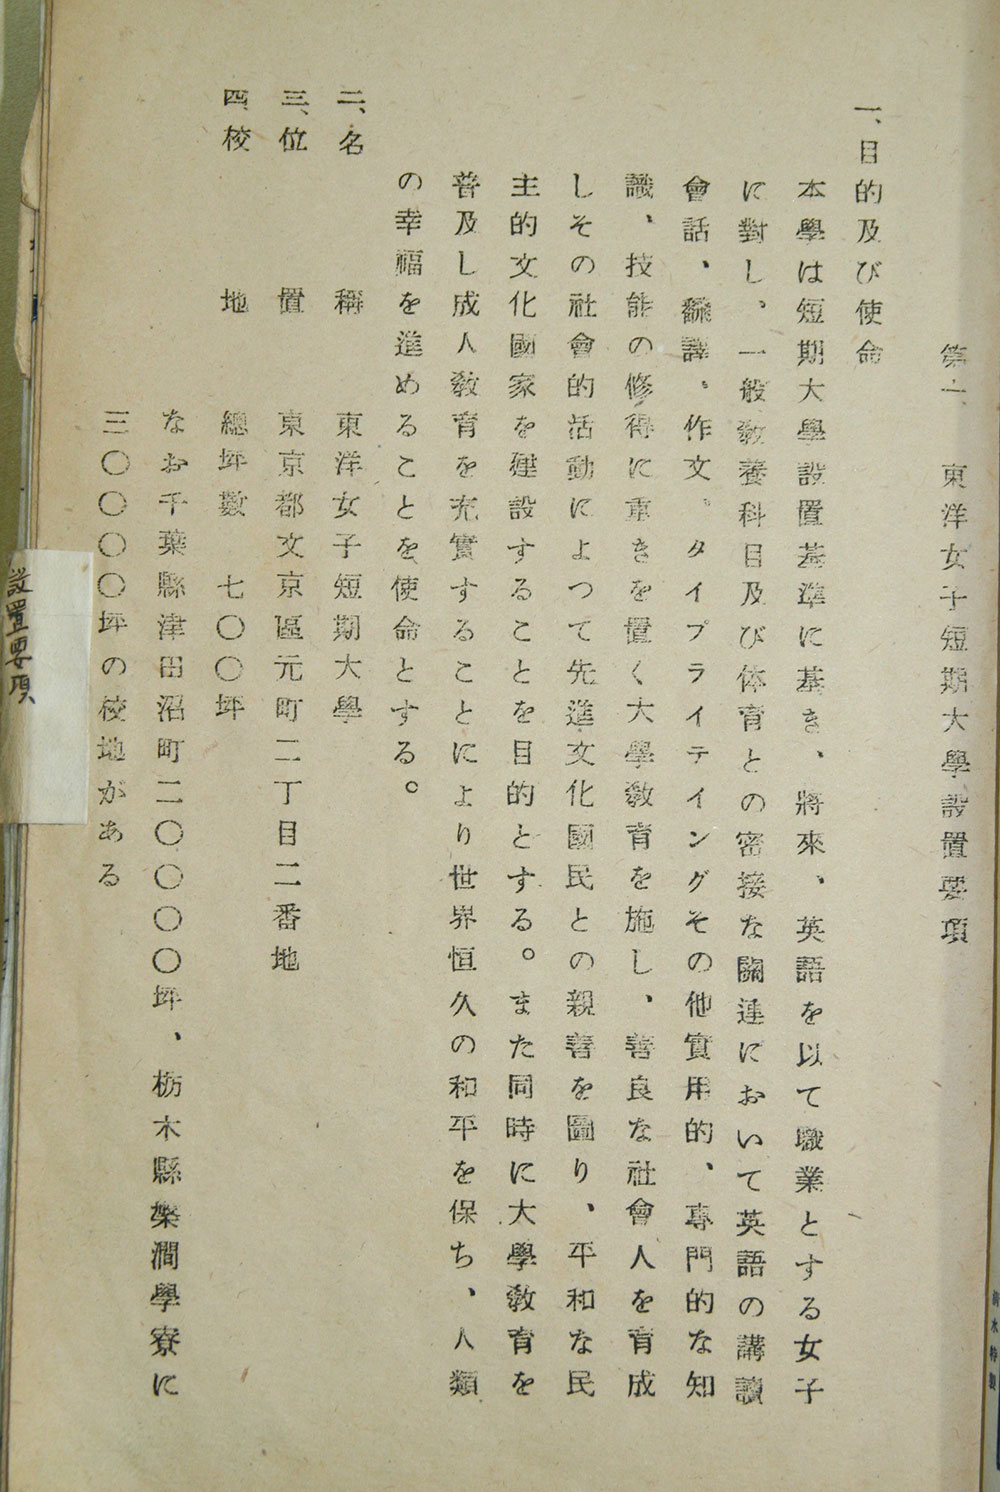 第一、東洋女子短期大學設置要項
一、目的及び使命
本學は短期大學設置基準に基き、將來、英語を以て職業とする女子
に對し、一般敎養科目及び体育との密接な關連において英語の講讀
會話、飜譯、作文、タイプライテイングその他實用的、專門的な知
識、技能の修得に重きを置く大學敎育を施し、善良な社會人を育成
しその社會的活動によつて先進文化國民との親善を圖り、平和な民
主的文化國家を建設することを目的とする。また同時に大學敎育を
普及し成人敎育を充實することにより世界恒久の和平を保ち、人類
の幸福を進めることを使命とする。
二、名稱 東洋女子短期大學
三、位置 東京都文京區元町二丁目二番地
四、校地 總坪數 七〇〇坪
なお千葉縣津田沼町二〇〇〇〇坪、栃木縣 澗學寮に
三〇〇〇〇坪の校地がある
設置要項